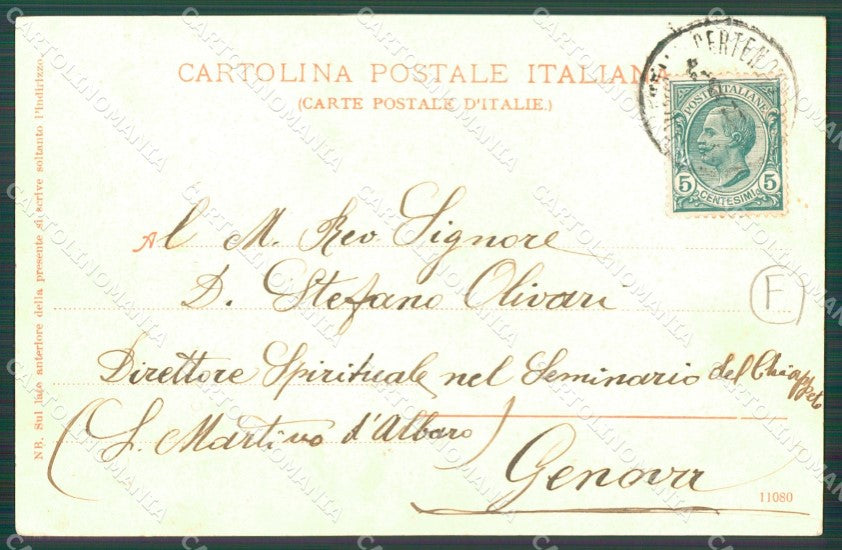 CARTOLINA POSTALE ITALIANA
(CARTE POSTALE D'ITALIE.)
POSTE ITALIANE
5 5
CENTESIMI
Al M. Rev Signore
D. Stefano Olivari
F
Direttore Spirituale nel Seminario del Chiappeto
(S. Martino d'Albaro)
Genova
11080
NB. Sul lato anteriore della presente si scrive soltanto l'indirizzo.
CARTOLINOMANIA